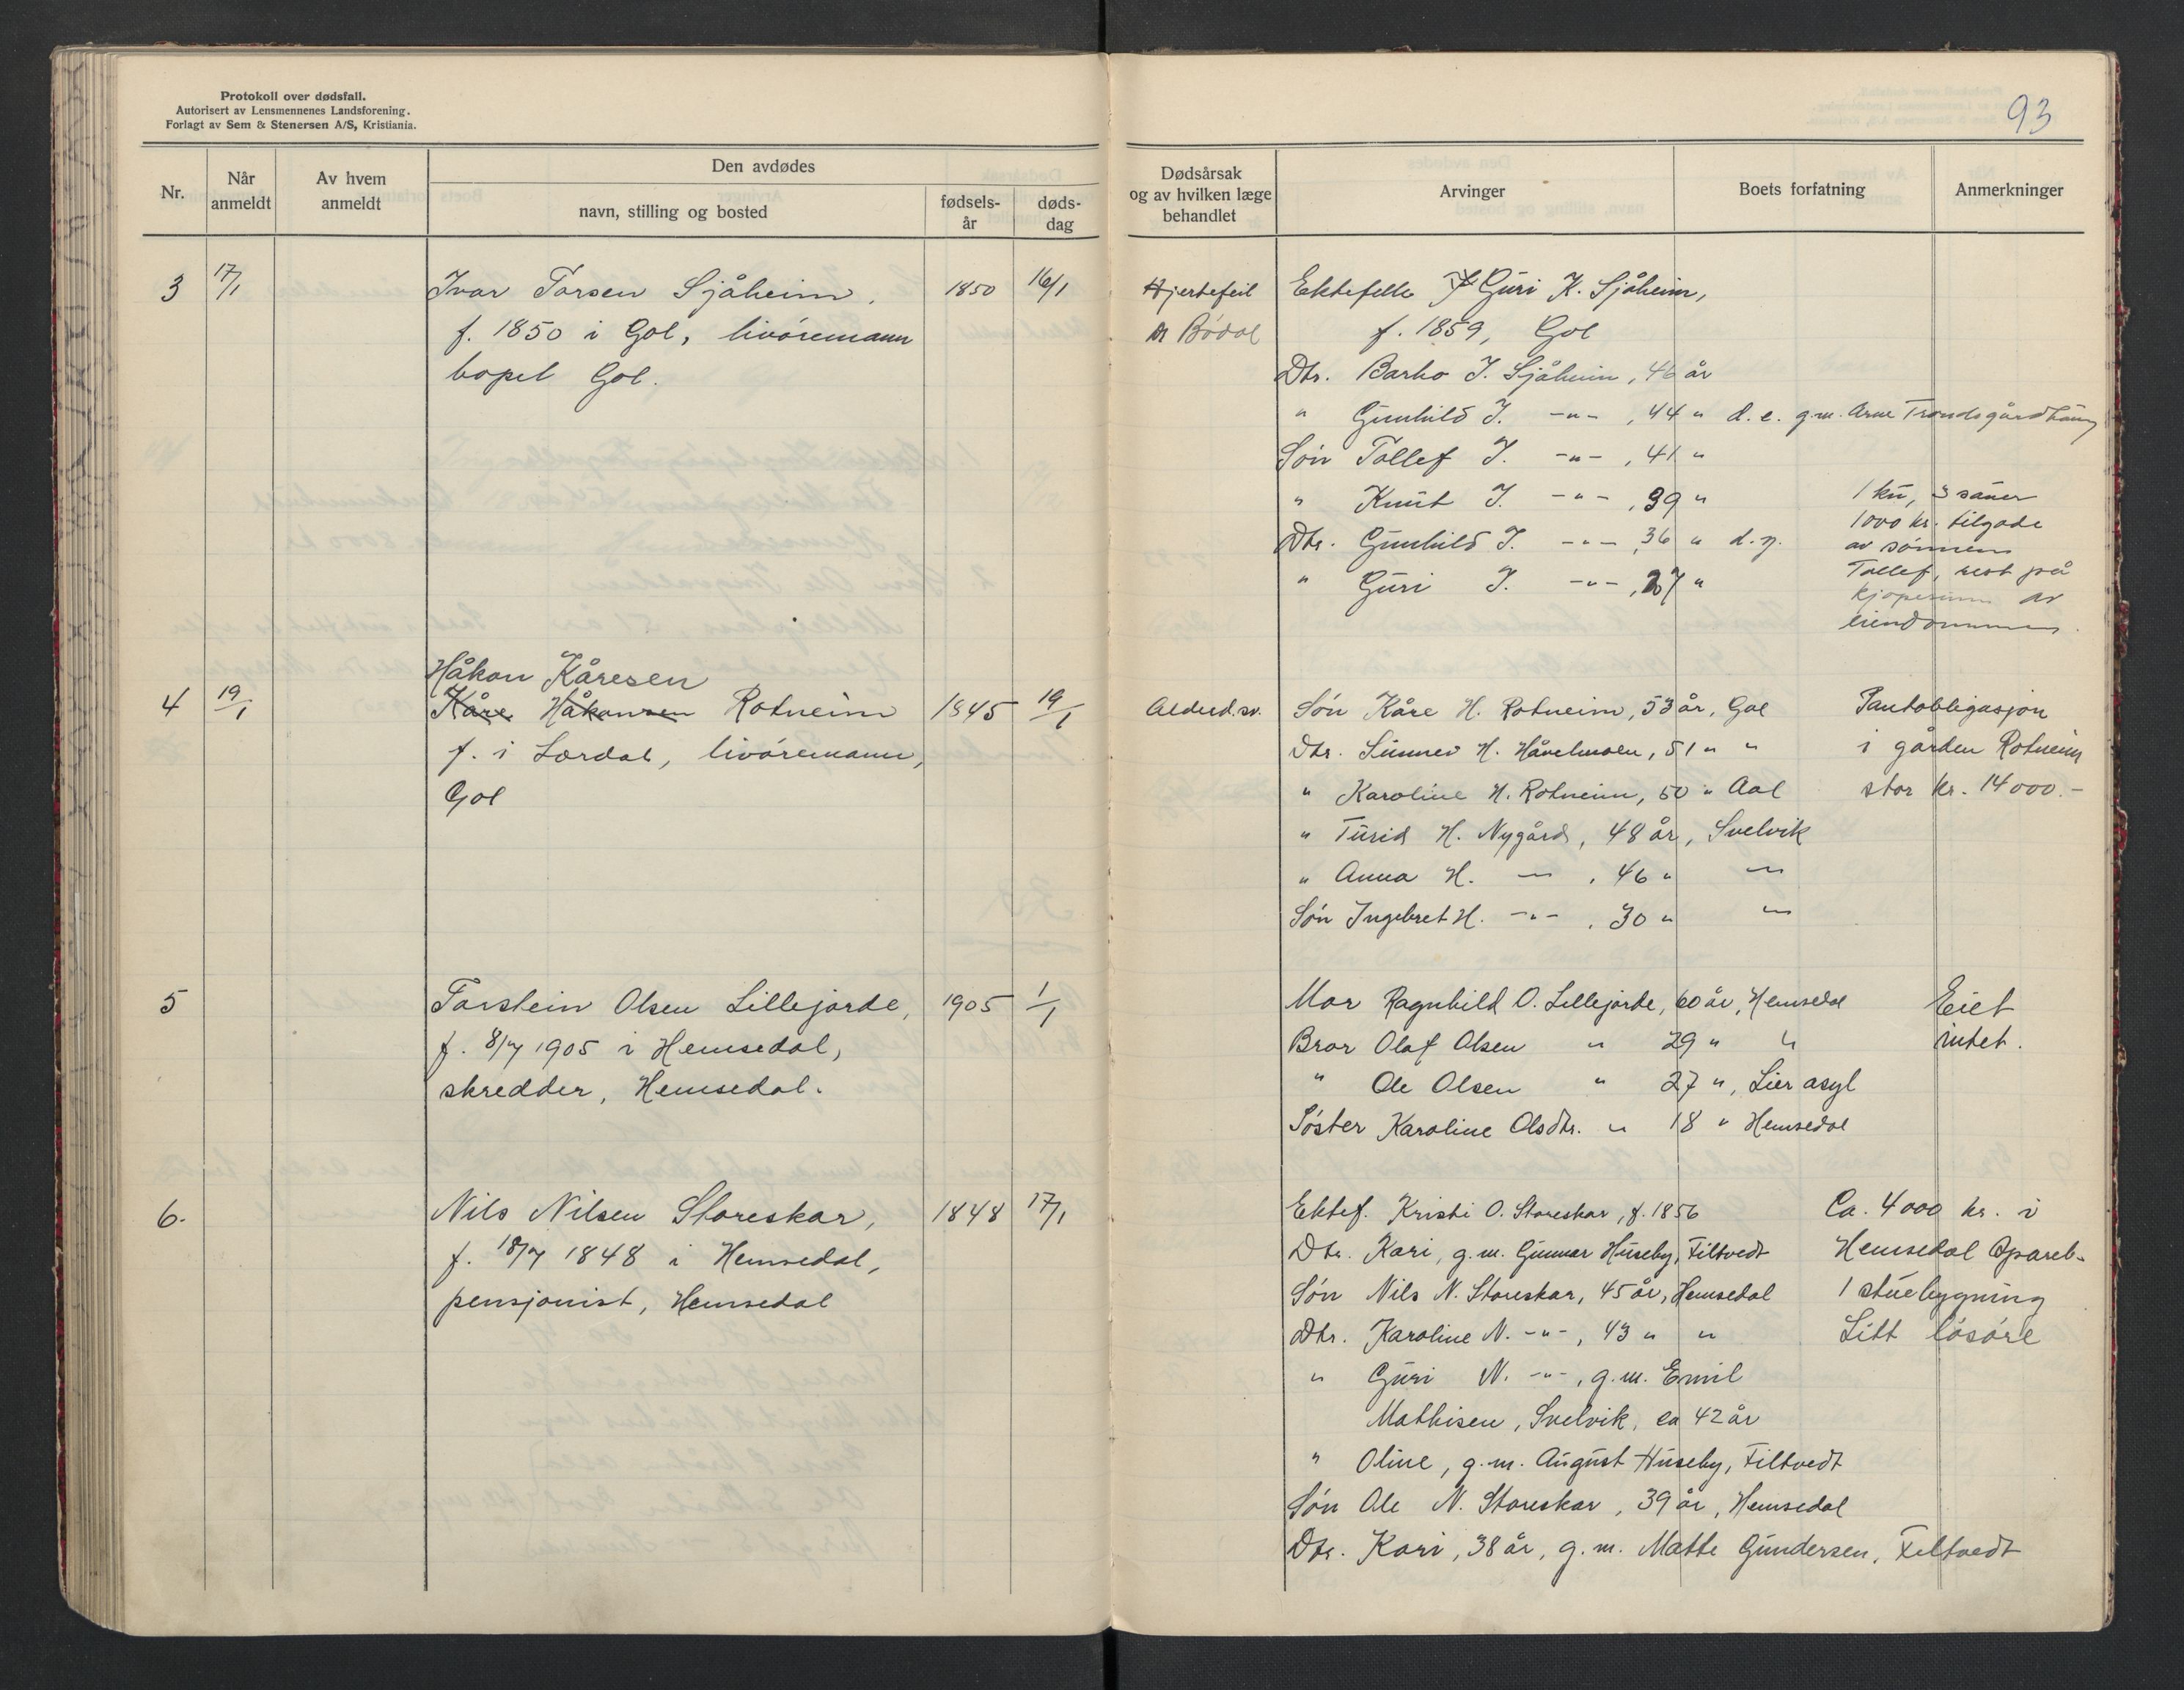 Protokoll over dødsfall.
Autorisert av Lensmennenes Landsforening.
Forlagt av Sem & Stenersen A/S, Kristiania.
93
Nr.
Når anmeldt
Av hvem anmeldt
Den avdødes
navn, stilling og bosted
fødsels-år
døds-dag
Dødsårsak og av hvilken læge behandlet
Arvinger
Boets forfatning
Anmerkninger
3 17/1 Ivar Torsen Sjåheim, 1850 16/1
f. 1850 i Gol, livøremann
bopel Gol.
Hjertefeil
Dr Bödal
Ektefelle Guri K. Sjåheim,
f. 1859, Gol
Dtr. Barbo I. Sjåheim, 46 år
" Gunhild I. -"- , 44 " d.e. g.m. Arne Trondsgårdhaug
Søn Tollef I. -"- , 41 "
" Knut I. -"- , 39 "
Dtr. Gunhild I. -"- , 36 " d.y.
" Guri I. -"- , 27 "
1 ku, 3 sauer
1000 kr. tilgode
av sønnen
Tollef, rest på
kjøpesum av
eiendommen.
Håkon Kåresen
4 19/1 Kåre Håkonsen Rotneim 1845 19/1
f. i Lærdal, livøremann,
Gol
Alderd.sv.
Søn Kåre H. Rotneim, 53 år, Gol
Dtr. Sunnev H. Håvelmoen, 51 " "
" Karoline H. Rotneim, 50 " Aal
" Turid H. Nygård, 48 år, Svelvik
" Anna H. -"- , 46 " -"-
Søn Ingebret H. -"- , 30 " -"-
Pantobligasjon
i gården Rotneim
stor kr. 14000.-
5 Torstein Olsen Lillejorde, 1905 1/1
f. 8/7 1905 i Hemsedal,
skredder, Hemsedal.
Mor Ragnhild O. Lillejorde, 60 år, Hemsedal
Bror Olaf Olsen " 29 " "
" Ole Olsen " 27 ", Lier asyl
Søster Karoline Olsdtr. " 18 " Hemsedal
Eiet
intet.
6. Nils Nilsen Storeskar, 1848 17/1
f. 18/7 1848 i Hemsedal,
pensjonist, Hemsedal
Ektef. Kristi O. Storeskar, f. 1856
Dtr. Kari, g.m. Gunnar Huseby, Filtvedt
Søn Nils N. Storeskar, 45 år, Hemsedal
Dtr. Karoline N. -"- , 43 " "
" Guri N. -"- , g.m. Emil
Mathisen, Svelvik, ca 42 år
" Oline, g.m. August Huseby, Filtvedt
Søn Ole N. Storeskar, 39 år, Hemsedal
Dtr. Kari, 38 år, g.m. Matte Gundersen, Filtvedt
Ca. 4000 kr. i
Hemsedal Spareb.
1 stuebygning
Litt løsøre